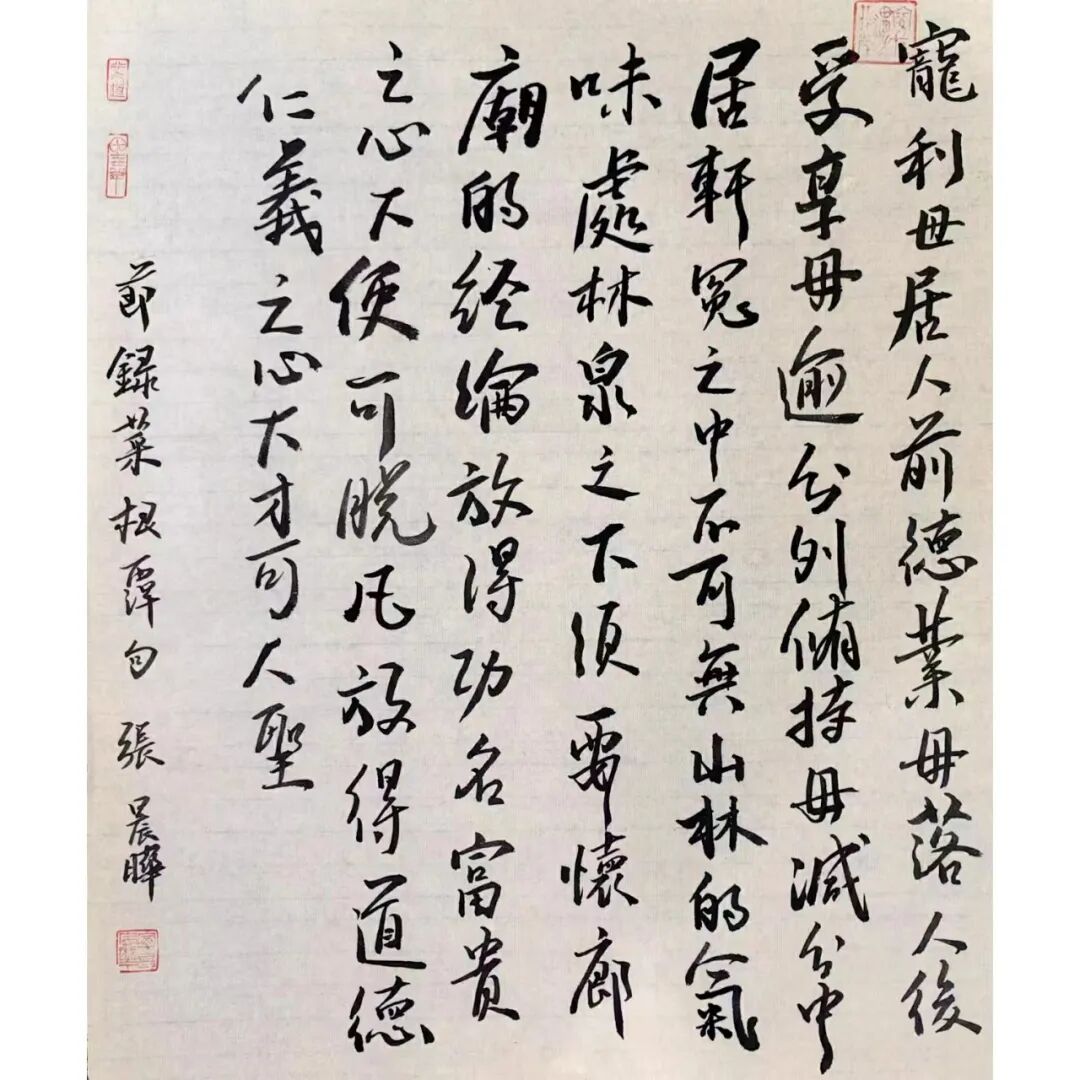 寵利毋居人前德業毋落人後
受享毋逾分外脩持毋減分中
居軒冕之中不可無山林的氣
味處林泉之下須要懷廊
廟的经綸放得功名富貴
之心下便可脱凡放得道德
仁義之心大才可入聖
節録菜根譚句 張晨曄